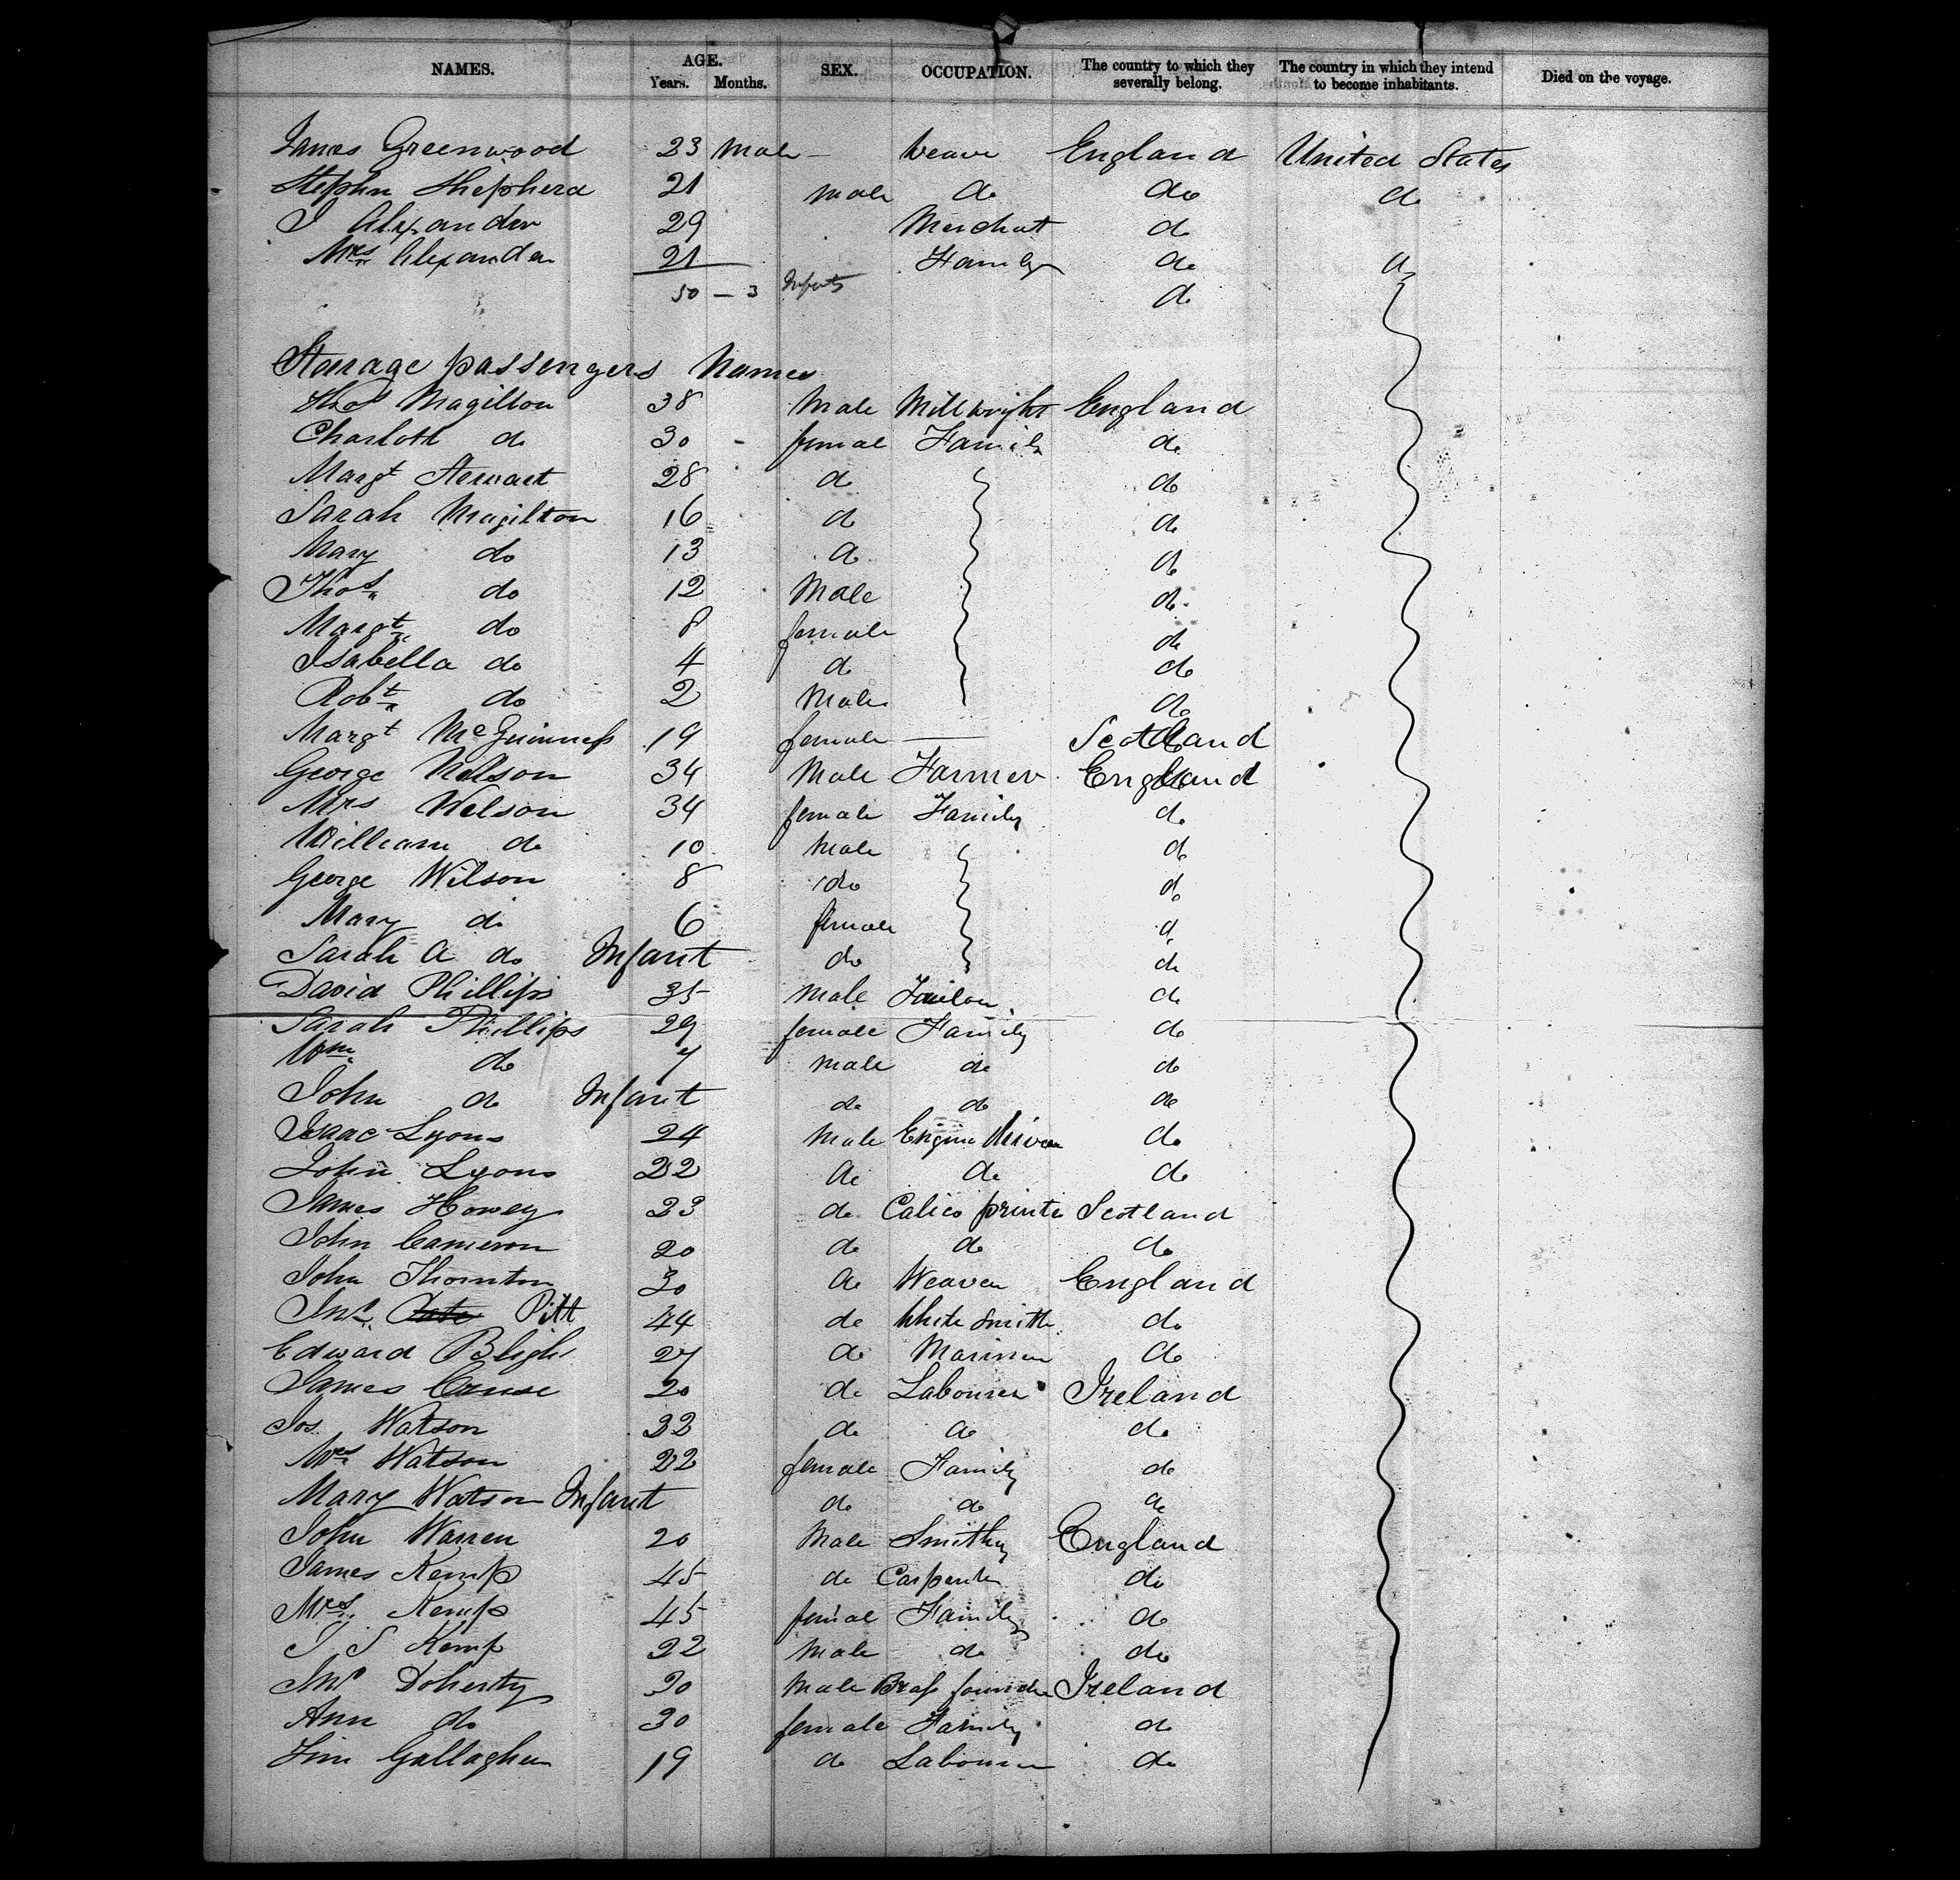 NAMES. AGE. Years. Months. SEX. OCCUPATION. The country to which they severally belong. The country in which they intend to become inhabitants. Died on the voyage.
James Greenwood 23 Male — Weaver England United States
Stephn Shepherd 21 male do do do
J Alexander 29 Merchant do
Mrs Alexander 21 Family do do
50 – 3 Infants do
Stearage passengers Names
Thos Magilton 38 Male Millwright England
Charlott do 30 - female Family do
Margt Stewart 28 do do
Sarah Magilton 16 do do
Mary do 13 do do
Thos do 12 Male do
Margt do 8 female do
Isabella do 4 do do
Robt do 2 Male do
Margt McGuinness 19 female — Scotland
George Wilson 34 Male Farmer England
Mrs Wilson 34 female Family do
William do 10 Male do
George Wilson 8 do do
Mary do 6 female do
Sarah A do Infant do do
David Phillips 35 Male Tailor do
Sarah Phillips 29 female Family do
Wm do 7 male do do
John do Infant do do do
Isaac Lyons 24 Male Engine driver do
John Lyons 22 do do do
James Howey 23 do Calico printer Scotland
John Cameron 20 do do do
John Thornton 30 do Weaver England
Jno Pitt 44 do White Smith do
Edward Bligh 27 do Mariner do
James Cruse 20 do Labourer Ireland
Jos. Watson 33 do do do
Mrs Watson 22 female Family do
Mary Watson Infant do do do
John Warren 20 Male Smithy England
James Kemp 45 do Carpenter do
Mrs Kemp 45 female Family do
J S Kemp 22 Male do do
Jno Doherty 30 Male Brass founder Ireland
Ann do 30 female Family do
Jim Gallagher 19 do Labourer do